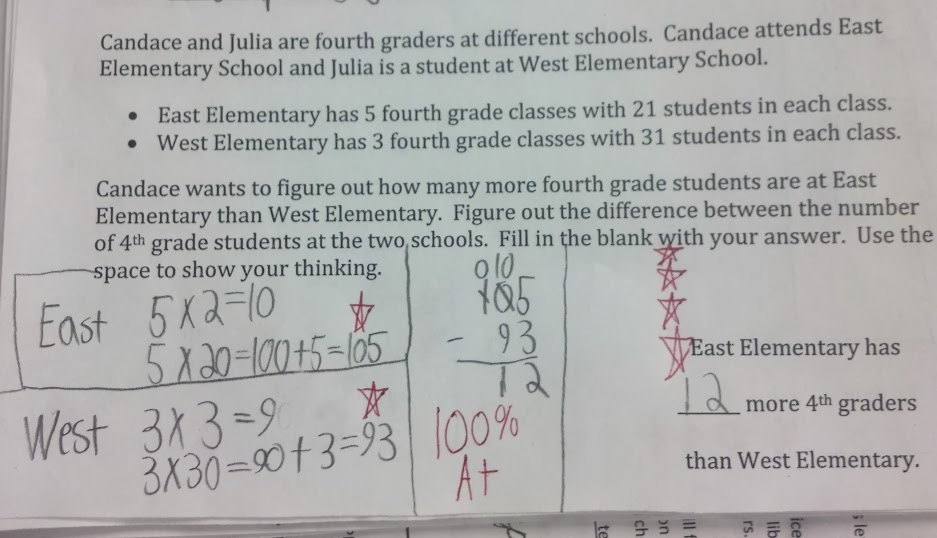 Candace and Julia are fourth graders at different schools. Candace attends East
Elementary School and Julia is a student at West Elementary School.
• East Elementary has 5 fourth grade classes with 21 students in each class.
• West Elementary has 3 fourth grade classes with 31 students in each class.
Candace wants to figure out how many more fourth grade students are at East
Elementary than West Elementary. Figure out the difference between the number
of 4th grade students at the two schools. Fill in the blank with your answer. Use the
space to show your thinking.
East
5 X 2=10
5 X 20=100+5=105
West
3 X 3=9
3X30=90+3=93
0 10
105
- 93
12
100%
A+
East Elementary has
12 more 4th graders
than West Elementary.